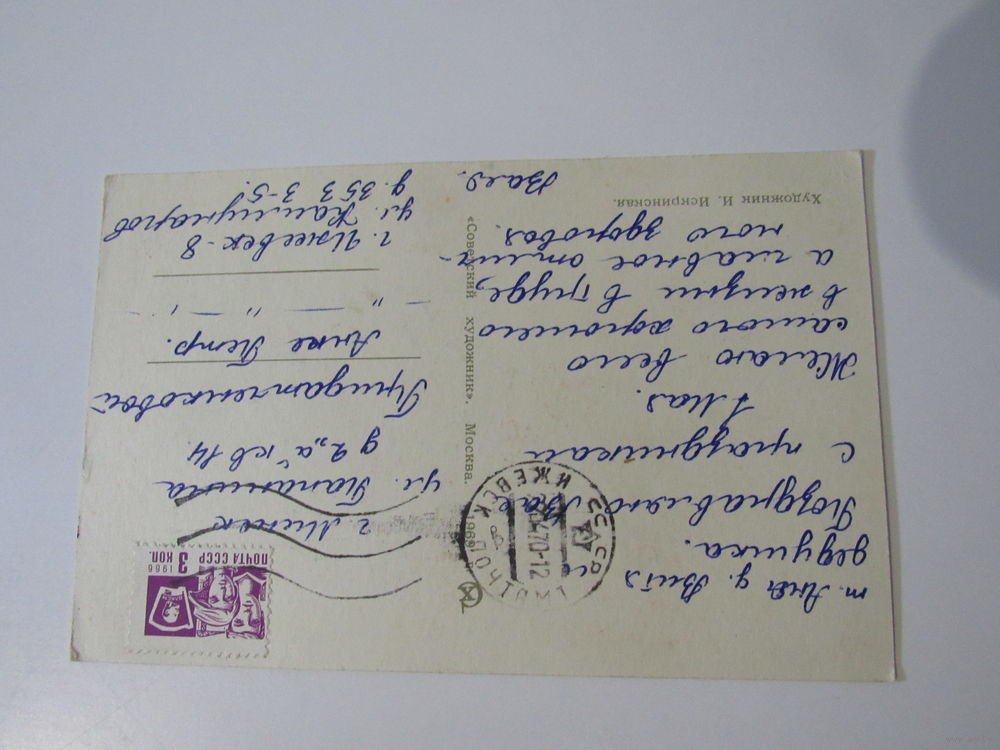 т. Аня д. Витя
дедушка.
Поздравляю Вас
с праздником
1 Мая.
Желаю всего
самого хорошего
в жизни в труде,
а главное отлич-
ного здоровья.
Валя.
Художник И. Искринская.
«Советский художник». Москва. 1969
СССР
ИЖЕВСК
ПОЧТАМТ
70-12
ПОЧТА СССР
1966
3 КОП.
г. Минск
ул. Папанина
д 2 „а" кв 14
Придатченковой
Анне Петр.
г. Ижевск-8
ул. Коммунаров
д. 353 3-5.